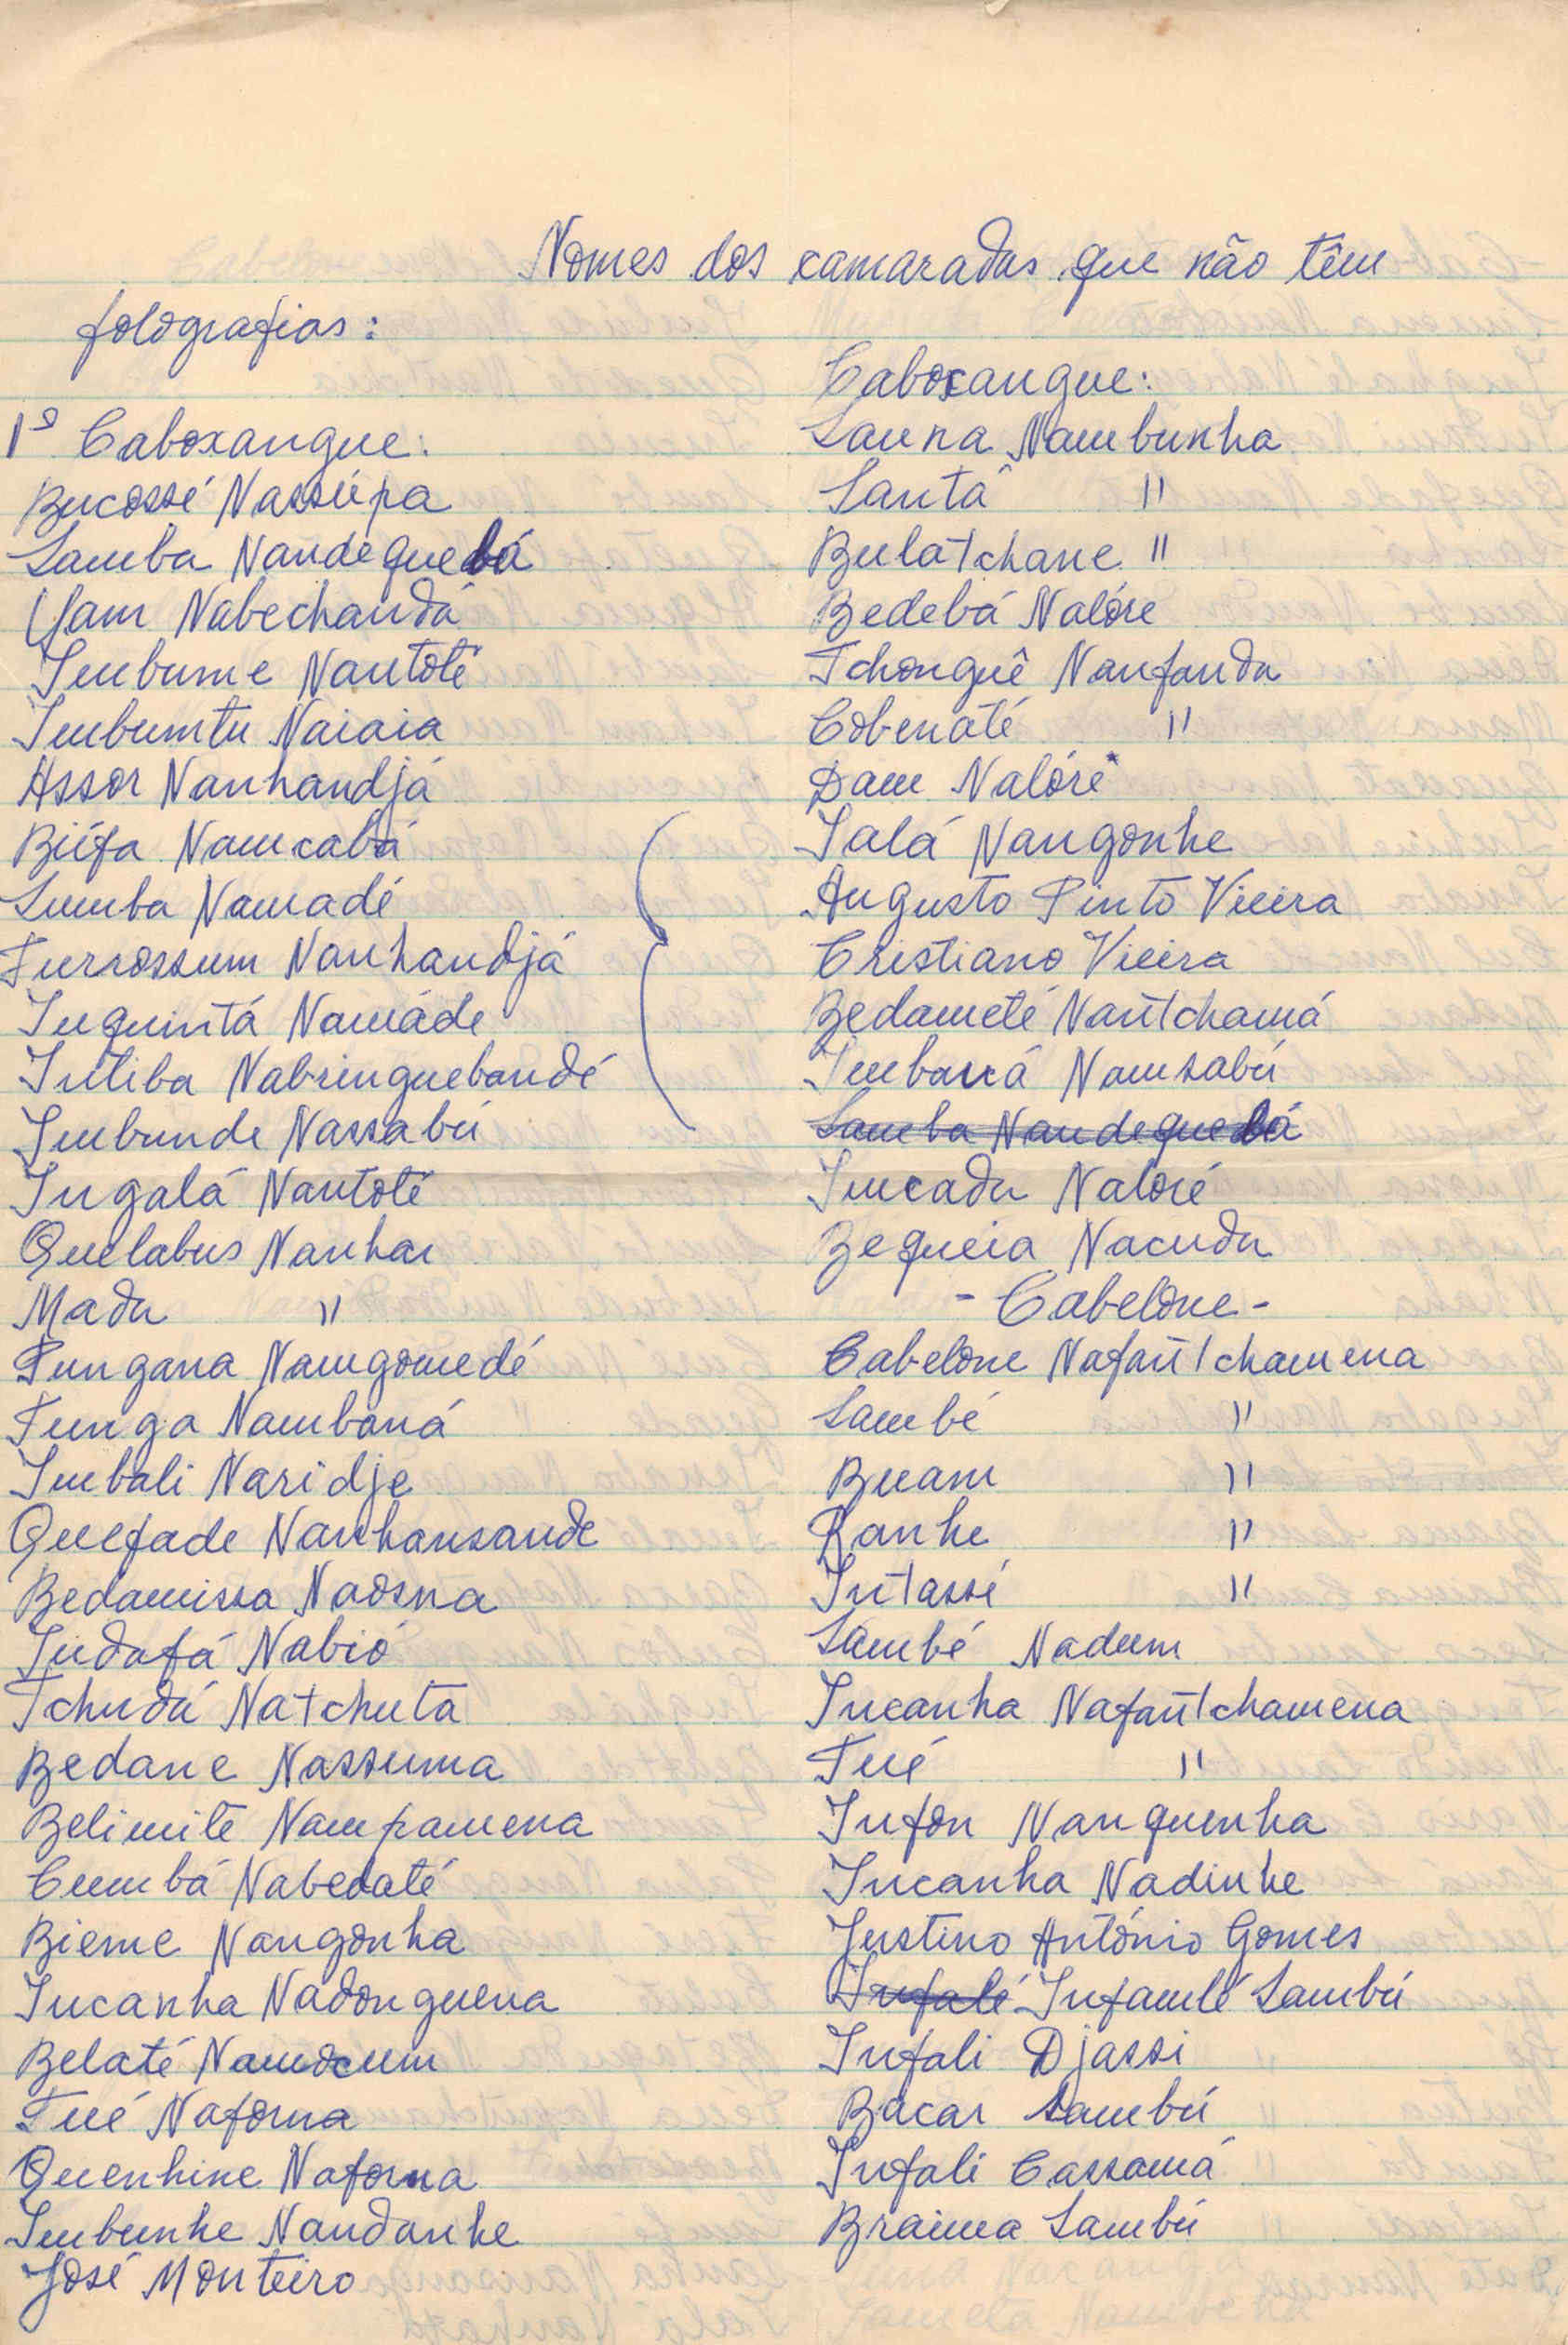 Nomes dos camaradas que não têm
fotografias:
1º Caboxangue:
Bucossé Nassúpa
Samba Nandequebá
Yam Nabechandá
Imbume Nantoté
Imbumtu Naiaia
Assor Nanhandjá
Biúfa Namcabá
Sumba Namadé
Furrossum Nanhandjá
Inquintá Namáde
Intiba Nabringuebandé
Imbunde Nassabú
Ingalá Nantoté
Quelabus Nanhau
Madu "
Pungana Namgomedé
Tunga Nambaná
Imbali Naridje
Quefade Nanhansande
Bedamissa Naosna
Indafá Nabió
Tchudá Natchuta
Bedane Nassuma
Belimite Nampamena
Cumbá Nabedaté
Bieme Nangonha
Incanha Nadonguena
Belaté Namdcum
Tué Naforna
Quenhine Naforna
Imbunhe Nandanhe
José Monteiro
Caboxangue:
Sauna Nambunha
Santâ "
Bulatchane "
Bedebá Nalóre
Tchonguê Nanfanda
Cobenaté "
Dam Nalóré
Ialá Nangonhe
Augusto Pinto Vieira
Cristiano Vieira
Bedameté Nantchamá
Imbaná Namsabú
Samba Nandequebá
Imcadu Naloré
Bequeia Nacudu
- Cabelone -
Cabelone Nafantchamena
Sambé "
Buam "
Ranhe "
Intassé "
Sambé Nadum
Incanha Nafantchamena
Tué "
Infon Nanquenha
Incanha Nadinhe
Justino António Gomes
Infalé Infamlé Sambú
Infali Djassi
Bacar Sambú
Infali Cassamá
Braima Sambú